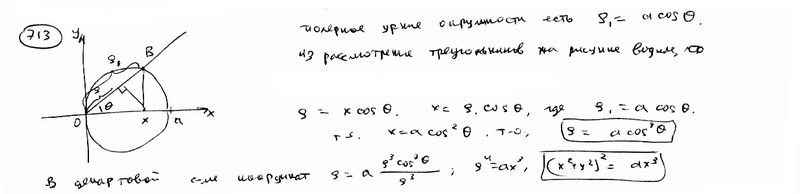 713
y
ρ₁
B
ρ
θ
O
x
a
x
полярное ур-ние окружности есть ρ₁ = a cos θ.
из рассмотрения треугольников на рисунке видим, что
ρ = x cos θ. x = ρ₁ cos θ, где ρ₁ = a cos θ.
т.е. x = a cos² θ. т-о, ρ = a cos³ θ
В декартовой с-ме координат ρ = a ρ³ cos³ θ / ρ³ ; ρ⁴ = ax³, (x²+y²)² = ax³